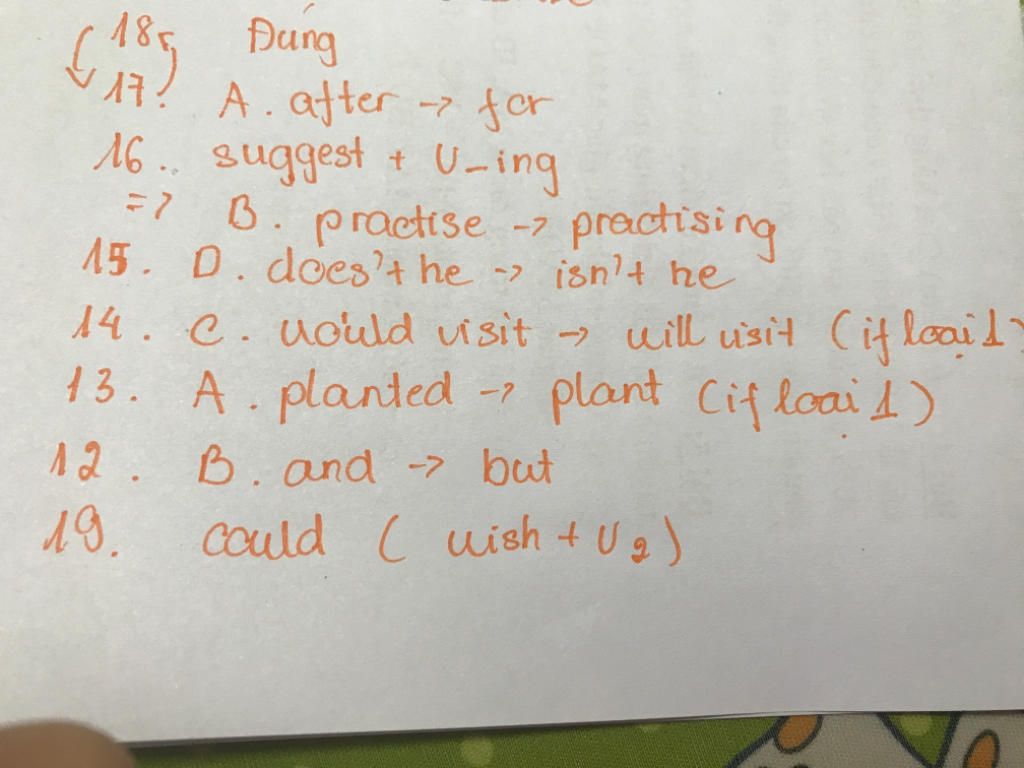 18. Đúng
17. A. after -> for
16. suggest + V-ing
=> B. practise -> practising
15. D. does't he -> isn't he
14. C. would visit -> will visit (if loại 1)
13. A. planted -> plant (if loại 1)
12. B. and -> but
19. could ( wish + V2)